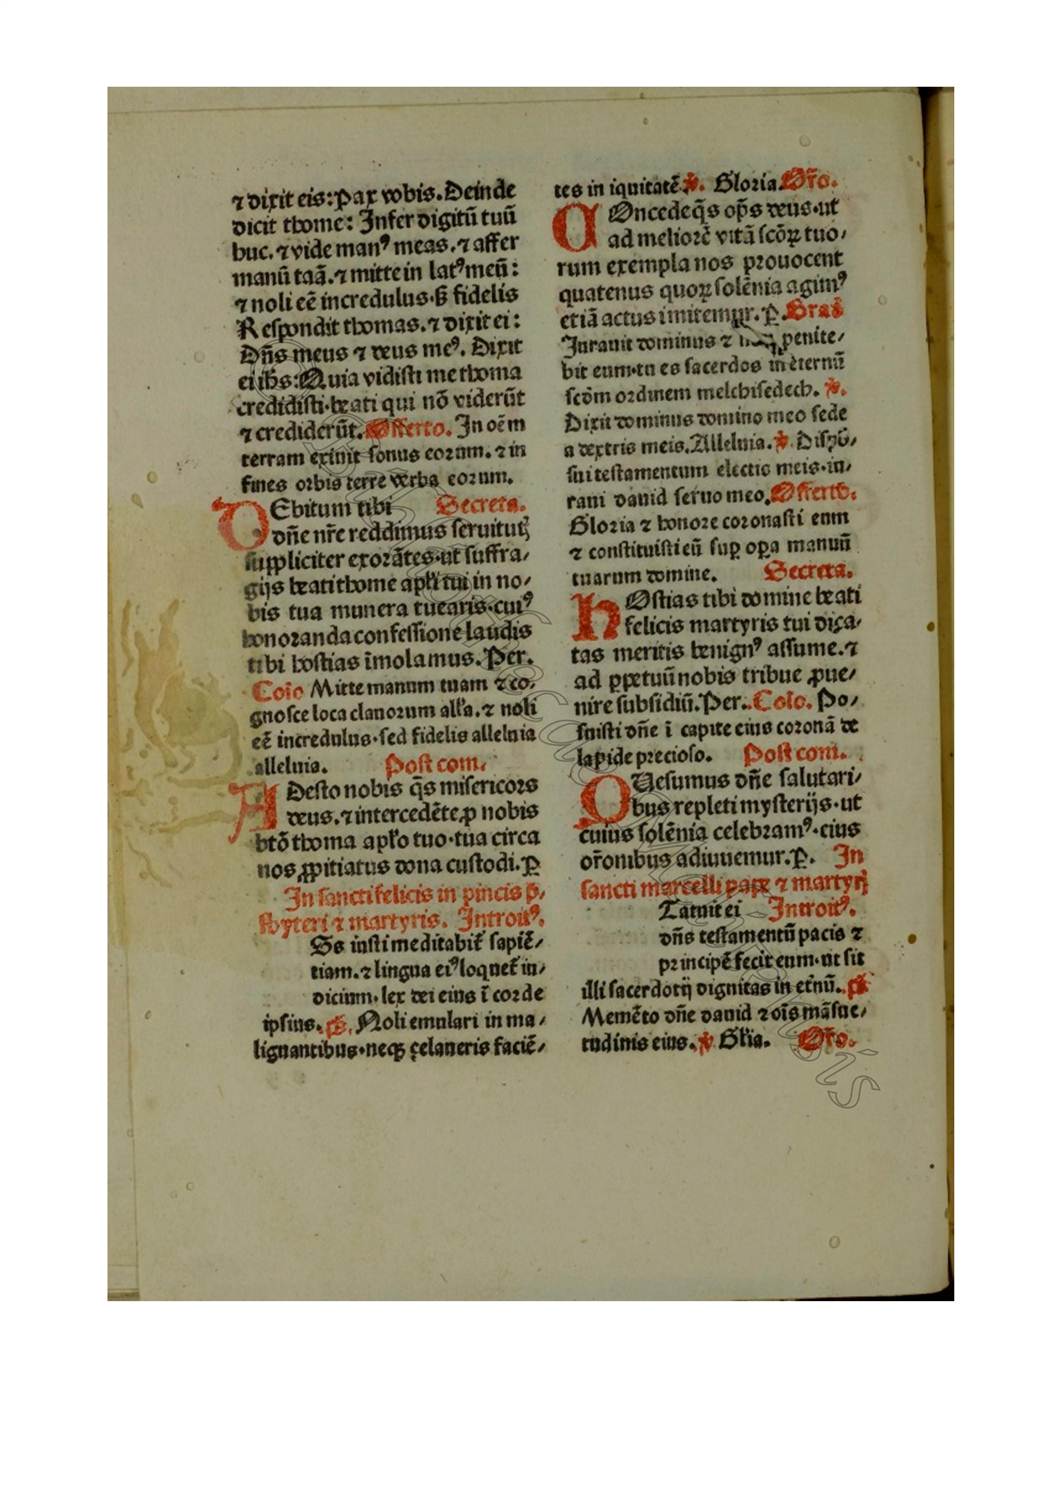 ⁊ dixit eis: Pax vobis. Deinde
dicit thome: Infer digitū tuū
huc. ⁊ vide manꝰ meas. ⁊ affer
manū taā. ⁊ mitte in latꝰ meū:
⁊ noli eē incredulus· ß fidelis
Respondit thomas. ⁊ dixit ei:
Dn̄s meus ⁊ deus meꝰ. Dixit
ei ih̄s: Quia vidisti me thoma
credidisti· beati qui nō viderūt
⁊ crediderūt. Offerto. In oēm
terram exiuit sonus eorum. ⁊ in
fines orbis terre verba eorum.
DEbitum tibi Secreta.
dn̄e nr̄e reddimus seruitutꝫ
suppliciter exorātes· ut suffra/
gijs beati thome apl̄i tui in no/
bis tua munera tuearis· cuiꝰ
honoranda confessione laudis
tibi hostias īmolamus. Per.
Coīo Mitte manum tuam ⁊ co/
gnosce loca clauorum all̄a. ⁊ noli
eē incredulus· sed fidelis alleluia
alleluia. Post com.
ADesto nobis q̄s misericors
deus. ⁊ intercedēte ꝓ nobis
btō thoma apl̄o tuo· tua circa
nos ꝓpitiatus dona custodi. P̄
In sancti felicis in pincis p̄/
sbyteri ⁊ martyris. Introitꝰ.
Os iusti meditabit̄ sapiē/
tiam. ⁊ lingua eiꝰ loquet̄ iu/
dicium· lex dei eius ī corde
ipsius. p̄s. Noli emulari in ma/
lignantibus· neqꝫ çelaueris faciē/
tes in iquitatē. ℣. Gloria. Or̄o.
COncede q̄s op̄s deus· ut
ad meliorē vitā sc̄oꝝ tuo/
rum exempla nos prouocent
quatenus quoꝝ solēnia agimꝰ
etiā actus imitemur. P̄. Grad̄
Iurauit dominus ⁊ penite/
bit eum· tu es sacerdos in eternū
scd̄m ordinem melchisedech. ℣.
Dixit dominus domino meo sede
a dextris meis. Alleluia. ℣. Disposū/
sui testamentum electis meis· iu/
raui dauid seruo meo. Offerto.
Gloria ⁊ honore coronasti eum
⁊ constituisti eū sup̄ oꝑa manuū
tuarum domine. Secreta.
HOstias tibi domine beati
felicis martyris tui dica/
tas meritis benignꝰ assume. ⁊
ad ꝑpetuū nobis tribue ꝓue/
nire subsidiū. Per.. Coīo. Po/
suisti dn̄e ī capite eius coronā de
lapide precioso. Post com.
QUesumus dn̄e salutari/
bus repleti mysterijs· ut
cuius solēnia celebramꝰ· eius
or̄onibus adiuuemur. P̄. In
sancti marcelli pape ⁊ martyrꝭ
Statuit ei Introitꝰ.
dn̄s testamentū pacis ⁊
principē fecit eum· ut sit
illi sacerdotij dignitas in et̄nū. p̄s
Memēto dn̄e dauid ⁊ oīs māsue/
tudinis eius. ℣ Gl̄ia. Or̄o.